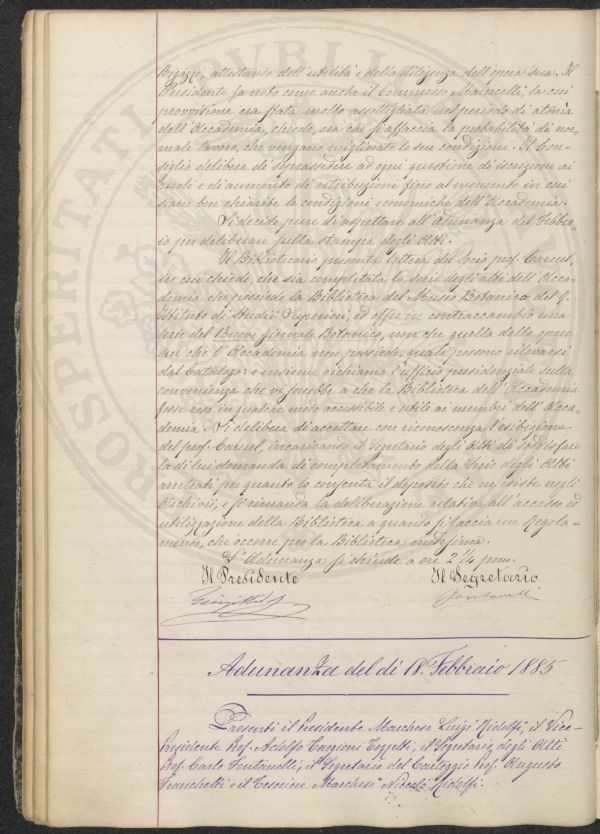 Bigazzi, attestante dell'utilità e della diligenza dell'opera sua. Il
Presidente fa noto come anche il Commesso Maincelli, la cui
provvisione era stata molto assottigliata nel periodo di atonia
dell'Accademia, chiede, ora che si affaccia la probabilità di nor-
male lavoro, che vengano migliorate le sue condizioni. Il Con-
siglio delibera di soprassedere ad ogni questione di iscrizione ai
ruoli e di aumento di retribuzione fino al momento in cui
siano ben chiarite le condizioni economiche dell'Accademia.
Si decide pure di aspettare all'adunanza del Febbra-
io per deliberare sulla stampa degli Atti.
Il Bibliotecario presenta lettera del Socio prof. Caruel,
in cui chiede, che sia completata la serie degli atti dell'Acca-
demia che possiede la Biblioteca del Museo Botanico del R.
Istituto di Studii Superiori, ed offre in contraccambio una
serie del Nuovo Giornale Botanico, non che quella delle opere
che l'Accademia non possiede, quali possono rilevarsi
dal Catalogo: e insieme richiama l'ufficio presidenziale sulla
convenienza che vi sarebbe a che la Biblioteca dell'Accademia
fosse resa in qualche modo accessibile e utile ai membri dell'Acca-
demia. Si delibera di accettare con riconoscenza l'esibizione
del prof. Caruel, incaricando il Segretario degli Atti di soddisfare
la di lui domanda di completamento della Serie degli Atti
arretrati per quanto lo consenta il deposito che ne esiste negli
Archivii, e si rimanda la deliberazione relativa all'accesso ed
utilizzazione della Biblioteca a quando si faccia un Regola-
mento, che occorre per la Biblioteca medesima.
L'Adunanza si chiude a ore 2 1/4 pom.
Il Presidente Il Segretario
Luigi Ridolfi Fontanelli
Adunanza del dì 18. Febbraio 1885
Presenti il Presidente Marchese Luigi Ridolfi, il Vice-
Presidente Prof. Adolfo Targioni Tozzetti, il Segretario degli Atti
Prof. Carlo Fontanelli, il Segretario del Carteggio Prof. Augusto
Franchetti e il Tesoriere Marchese Niccolò Ridolfi.